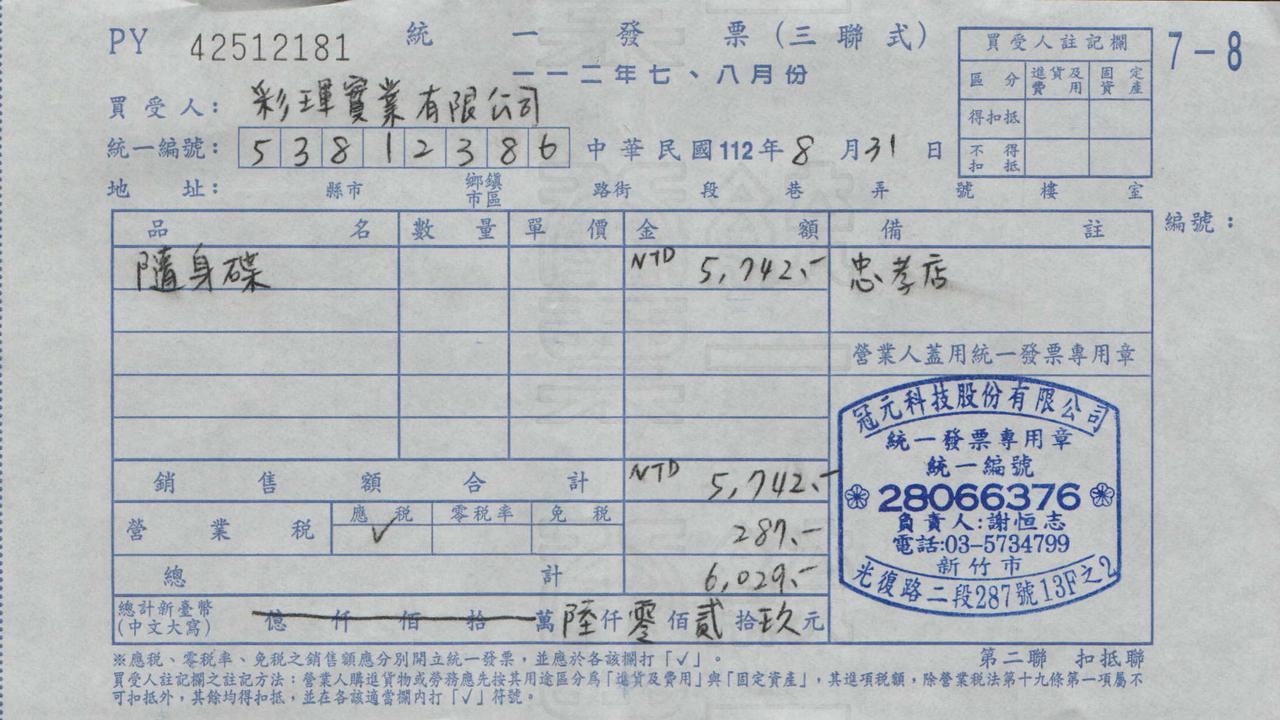 PY 42512181 統一發票(三聯式) 7-8
一一二年七、八月份
買受人註記欄
區分 進貨及費用 固定資產
得扣抵
不得扣抵
買受人: 彩琿實業有限公司
統一編號: 53812386 中華民國112年8月31日
地址: 縣市 鄉鎮市區 路街 段 巷 弄 號 樓 室
編號:
品名 數量 單價 金額 備註
隨身碟 NTD 5,742.- 忠孝店
營業人蓋用統一發票專用章
銷售額合計 NTD 5,742.-
營業稅 應稅 ✓ 零稅率 免稅 287.-
總計 6,029.-
總計新臺幣(中文大寫) 億仟佰拾萬陸仟零佰貳拾玖元
冠元科技股份有限公司
統一發票專用章
統一編號
28066376
負責人:謝恒志
電話:03-5734799
新竹市
光復路二段287號13F之2
※應稅、零稅率、免稅之銷售額應分別開立統一發票,並應於各該欄打「✓」。
第二聯 扣抵聯
買受人註記欄之註記方法:營業人購進貨物或勞務應先按其用途區分為「進貨及費用」與「固定資產」,其進項稅額,除營業稅法第十九條第一項屬不
可扣抵外,其餘均得扣抵,並在各該適當欄內打「✓」符號。